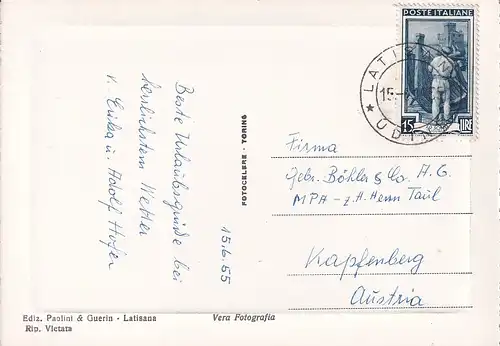 Beste Urlaubsgrüße bei
herrlichstem Wetter
v. Erika u. Adolf Hofer
15.6.55
FOTOCELERE - TORINO
POSTE ITALIANE
15 LIRE
LATISANA
15-
UDINE
Firma
Gebr. Böhler & Co. A.G.
MPA - z.H. Herrn Taul
Kapfenberg
Austria
Ediz. Paolini & Guerin - Latisana
Rip. Vietata
Vera Fotografia